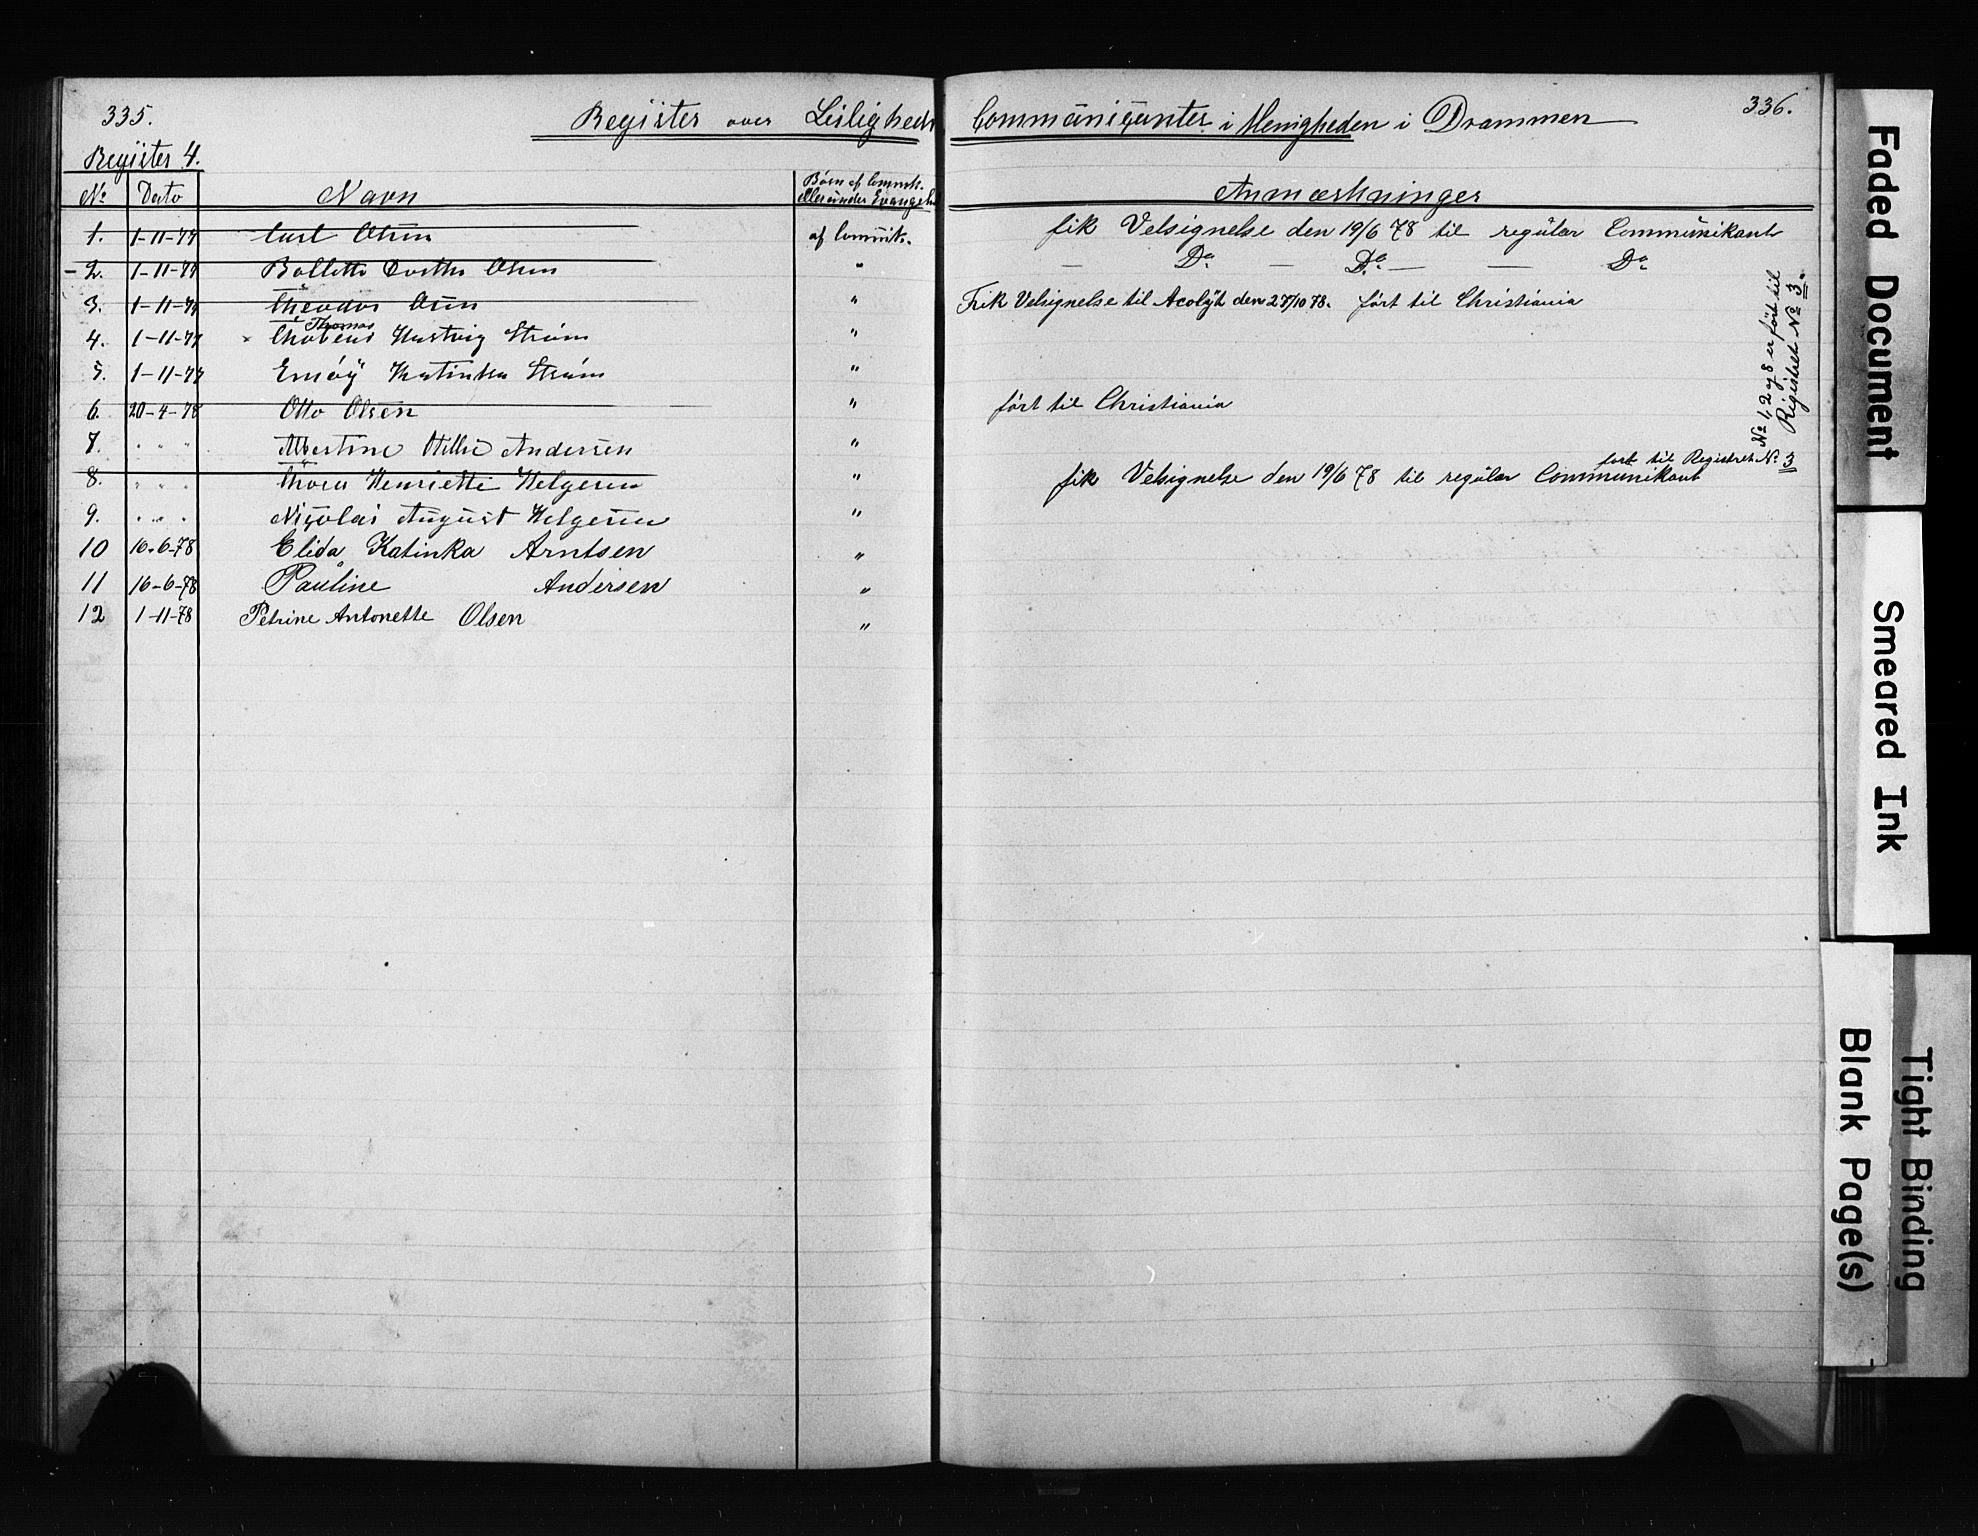 335.
Register over Leiligheds Communicanter i Menigheden i Drammen
336.
Register 4.
No Dato Navn Børn af Commk. eller under Evangel. Anmærkninger
1. 1-11-77 Carl Olsen af Commk. fik Velsignelse den 19/6 78 til regulær Communikant
2. 1-11-77 Bollette Dorthe Olsen " — Do — Do — — Do
3. 1-11-77 Theodor Olsen " Fik Velsignelse til Acolyt den 27/10 78. ført til Christiania
Thomas
4. 1-11-77 Hartvig Strøm "
5. 1-11-77 Katinka Strøm "
6. 20-4-78 Otto Olsen " ført til Christiania
7. " " " Albertine Andersen "
ført til Registret No 3
8. " " " Thora Henriette Helgesen " fik Velsignelse den 19/6 78 til regulær Communikant
9. " " " Nicolai August Helgesen "
10 16-6-78 Elida Katinka Arntsen "
11 16-6-78 Pauline Andersen "
12 1-11-78 Petrine Antonette Olsen "
No 1, 2 og 8 er ført til
Registret No 3.
Faded Document
Smeared Ink
Tight Binding
Blank Page(s)